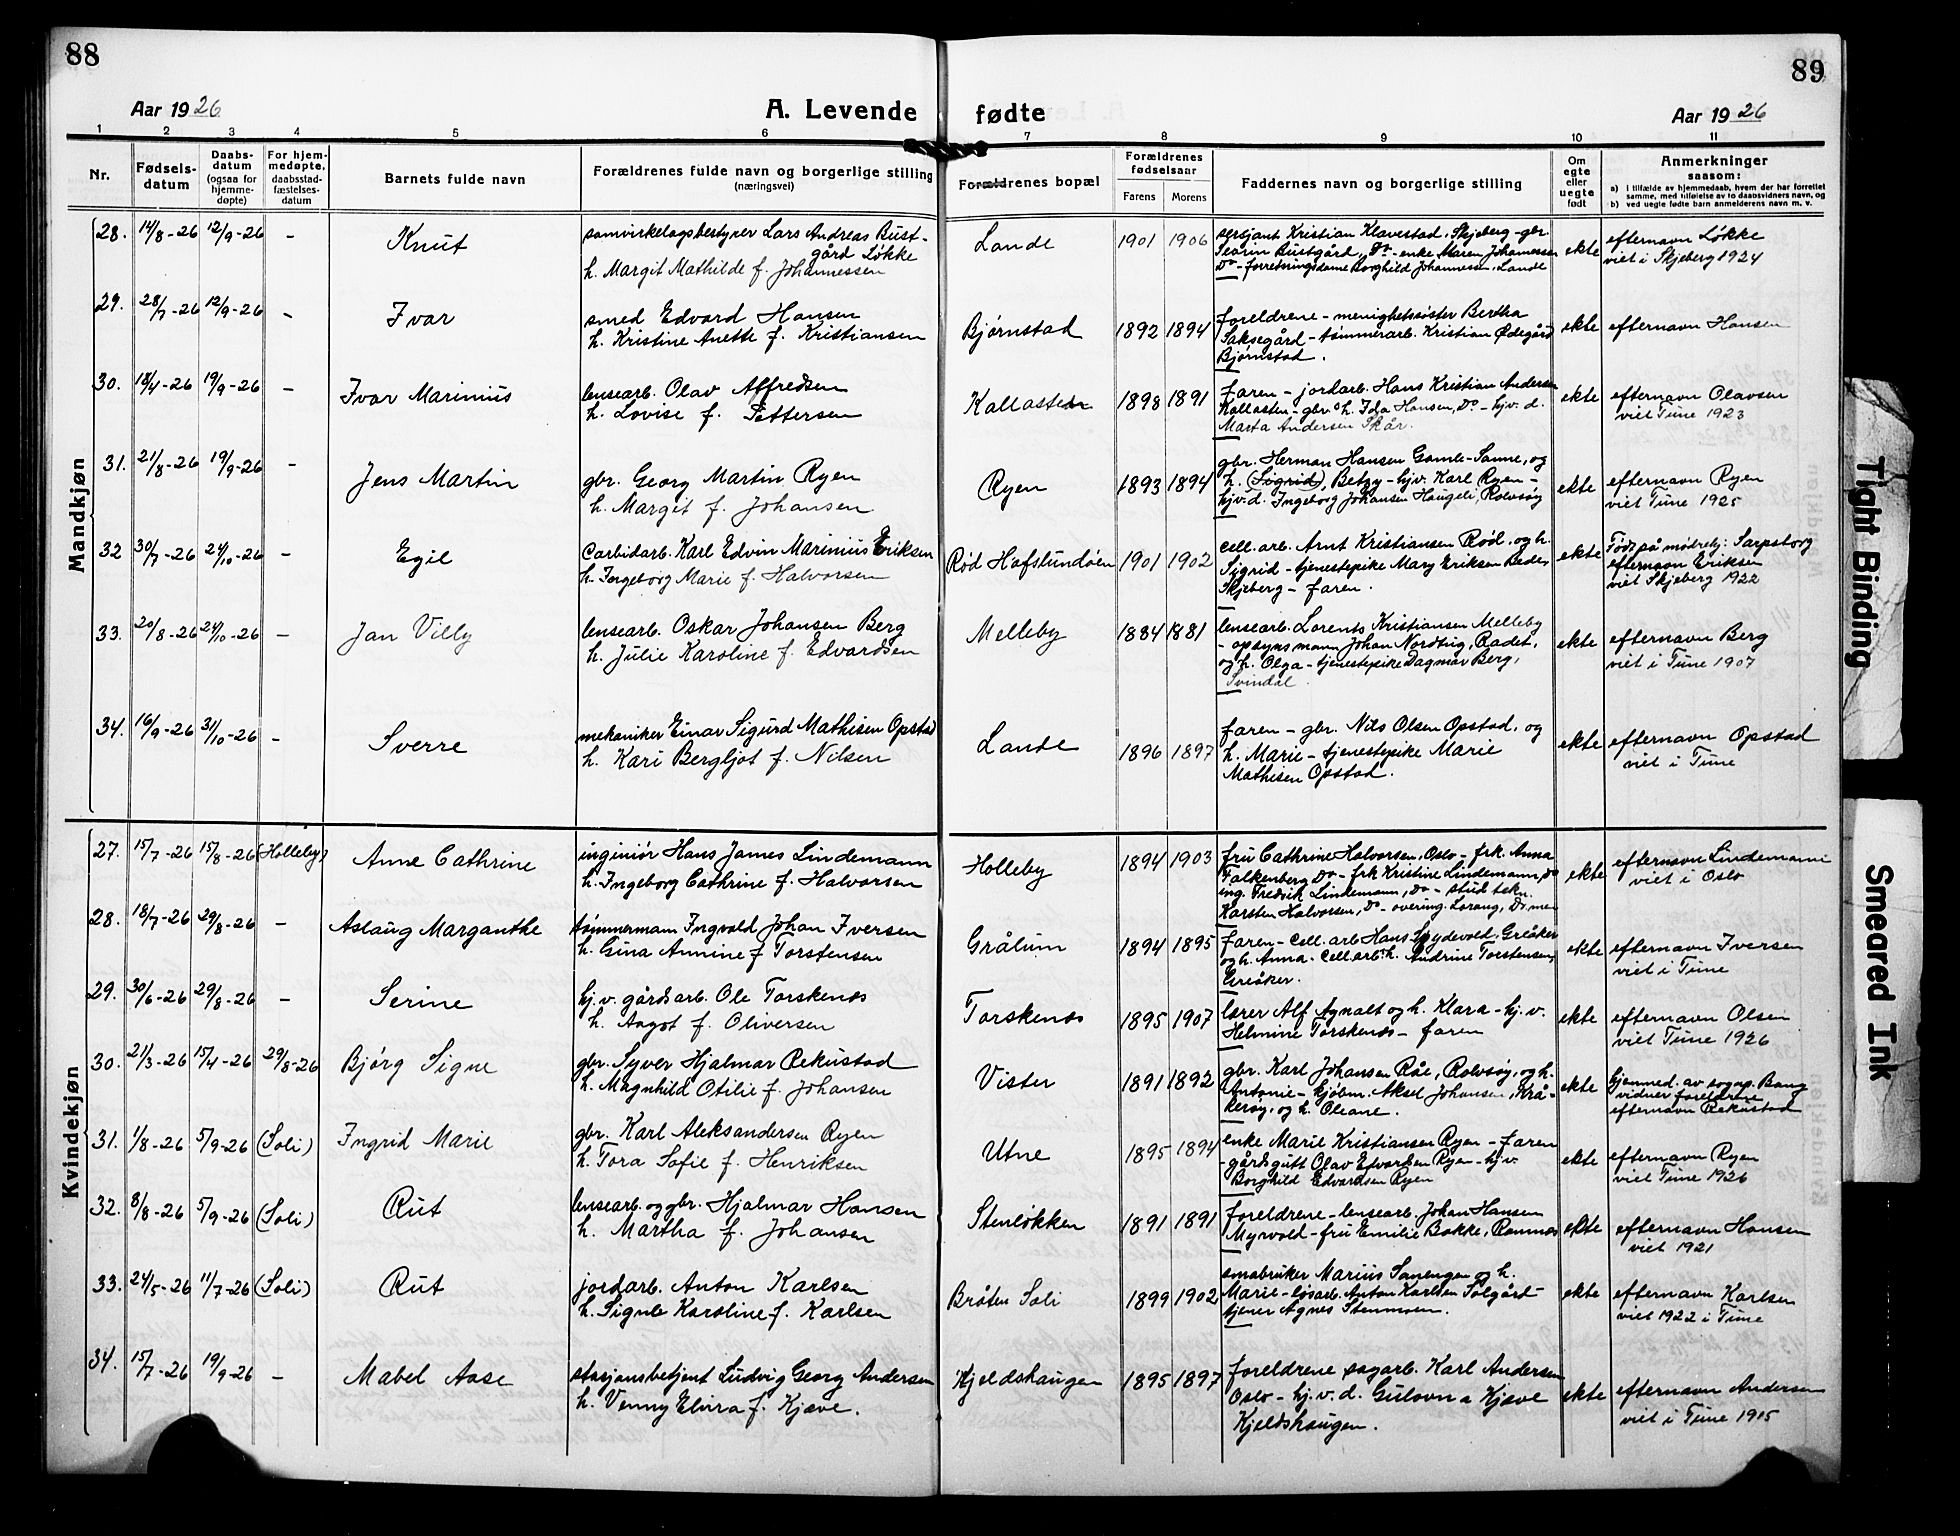 88
89
Aar 1926
A. Levende fødte
Aar 1926
1 2 3 4 5 6 7 8 9 10 11
Nr.
Fødsels-
datum
Daabs-
datum
(ogsaa for
hjemme-
døpte)
For hjem-
medøpte,
daabsstad-
fæstelses-
datum
Barnets fulde navn
Forældrenes fulde navn og borgerlige stilling
(næringsvei)
Forældrenes bopæl
Forældrenes
fødselsaar
Farens Morens
Faddernes navn og borgerlige stilling
Om
egte
eller
uegte
født
Anmerkninger
saasom:
a) i tilfælde av hjemmedaab, hvem der har forrettet
samme, med tilføielse av to daabsvidners navn, og
b) ved uegte fødte barn anmelderens navn m. v.
Mandkjøn
28. 14/8-26 12/9-26 - Knut
samvirkelagsbestyrer Lars Andreas Bust-
gård Løkke
h. Margit Mathilde f. Johannessen
Lande 1901 1906
sersjant Kristian Klavestad, Skjeberg - gbr.
Bustgård, Do - enke Maren Johannessen
Do - forretningsdame Borghild Johannessen, Lande
ekte
efternavn Løkke
viet i Skjeberg 1924
29. 28/7-26 12/9-26 - Ivar
smed Edvard Hansen
h. Kristine Anette f. Kristiansen
Bjørnstad 1892 1894
foreldrene - menighetssøster Bertha
Saksegård - tømmerarb. Kristian Ødegård
Bjørnstad.
ekte
efternavn Hansen
30. 18/4-26 19/9-26 - Ivar Marinius
lensearb. Olav Alfredsen
h. Lovise f. Pettersen
Kallasten 1898 1891
faren - jordarb. Hans Kristian Andersen
Kallasten - gbr. h. Ida Hansen, Do - hjv. d.
Marta Andersen Skår.
ekte
efternavn Olavsen
viet Tune 1923
31. 21/8-26 19/9-26 - Jens Martin
gbr. Georg Martin Ryen
h. Margit f. Johansen
Ryen 1893 1894
gbr. Herman Hansen Gamle-Sanne, og
h. (Sigrid), Betzy - hjv. Karl Ryen -
hjv. d. Ingeborg Johansen Haugeli, Rolvsøy
ekte
efternavn Ryen
viet Tune 1925
32 30/7-26 24/10-26 - Egil
Carbidarb. Karl Edvin Marinius Eriksen
h. Ingeborg Marie f. Halvorsen
Rød Hafslundsøen 1901 1902
cell. arb. Arnt Kristiansen Rød, og h.
Sigrid - tjenestepike Mary Eriksen
Skjeberg - faren.
ekte
Født på mødrehj: Sarpsborg
efternavn Eriksen
viet Skjeberg 1922
33. 20/8-26 24/10-26 - Jan Villy
lensearb. Oskar Johansen Berg
h. Julie Karoline f. Edvardsen
Melleby 1884 1881
lensearb. Lorents Kristiansen Melleby
- opsynsmann Johan Nordtug, Radet,
og h. Olga - tjenestepike Dagmar Berg,
Svindal.
ekte
efternavn Berg
viet i Tune 1907
34. 16/9-26 31/10-26 - Sverre
mekaniker Einar Sigurd Mathisen Opstad
h. Kari Bergljot f. Nilsen
Lande 1896 1897
faren - gbr. Nils Olsen Opstad, og
h. Marie - tjenestepike Marie
Mathisen Opstad.
ekte
efternavn Opstad
viet i Tune
Kvindekjøn
27. 15/7-26 15/8-26 (Holleby) Anne Cathrine
inginiør Hans James Lindemann
h. Ingeborg Cathrine f. Halvorsen
Holleby 1894 1903
fru Cathrine Halvorsen, Oslo - frk. Anna
Falkenberg Do - frk Kristine Lindemann, Do
ing. Fredrik Lindemann, Do - stud. tekn.
Karsten Halvorsen, Do - overing. Lorang, Do
ekte
efternavn Lindemann
viet i Oslo
28. 18/7-26 29/8-26 - Aslaug Marganthe
tømmermann Ingvald Johan Iversen
h. Gina Annine f Torstensen
Grålum 1894 1895
faren - cell. arb Hans Spydevold, Greåker
og h. Anna - cell. arb. h. Andrine Torstensen,
Greåker.
ekte
efternavn Iversen
viet i Tune
29. 30/6-26 29/8-26 - Serine
hj. v. gårdsarb. Ole Torskenæs
h. Aagot f. Oliversen
Torskenæs 1895 1907
lærer Alf Agnalt og h. Klara - hj. v.
Helmine Torskenæs - faren
ekte
efternavn Olsen
viet Tune 1926
30. 21/3-26 15/4-26 29/8-26 Bjørg Signe
gbr. Syver Hjalmar Rekustad
h. Magnhild Otilie f. Johansen
Vister 1891 1892
gbr. Karl Johansen Råe, Rolvsøy, og h.
Antonie - kjøbm. Aksel Johansen, Krå-
kerøy, og h. Oleane.
ekte
hjemmed. av sogнp. Bang
vidner foreldrene
efternavn Rekustad
31. 1/8-26 5/9-26 (Soli) Ingrid Marie
gbr. Karl Aleksandersen Ryen
h. Tora Sofie f. Henriksen
Utne 1895 1894
enke Marie Kristiansen Ryen - faren
- gårdsgutt Olav Edvardsen Ryen - hj.v.
Borghild Edvardsen Ryen
ekte
efternavn Ryen
viet i Tune 1926
32. 8/8-26 5/9-26 (Soli) Rut
lensearb. og gbr. Hjalmar Hansen
h. Martha f. Johansen
Stenløkken 1891 1891
foreldrene - lensearb. Johan Hansen
Myrvold - fru Emilie Bakke, Ramnæs
ekte
efternavn Hansen
viet 1921
33. 24/5-26 11/7-26 (Soli) Rut
jordarb. Anton Karlsen
h. Signe Karoline f. Karlsen
Bråten Soli 1899 1902
småbruker Marius Sanengen og h.
Marie - løsarb. Anton Karlsen Solgård -
tjener Agnes Stenmoen.
ekte
efternavn Karlsen
viet 1922 i Tune
34. 15/7-26 19/9-26 - Mabel Aase
stasjonsbetjent Ludvig Georg Andersen
h. Venny Elvira f. Kjæve.
Kjeldshaugen 1895 1897
foreldrene sagarb. Karl Andersen
Oslo - hj. v. d. Gulovna Kjæve
Kjeldshaugen.
ekte
efternavn Andersen
viet i Tune 1915
Tight Binding
Smeared Ink